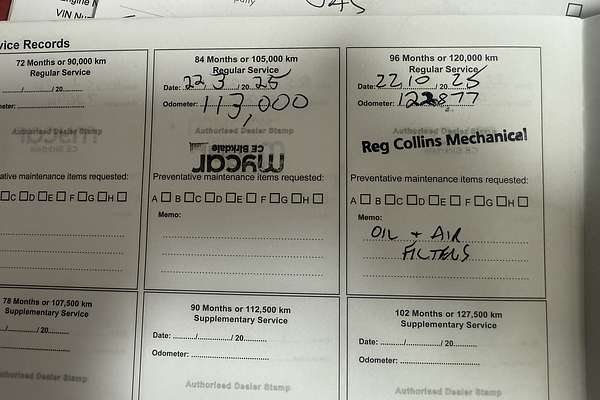 Engine N
VIN Nu
vice Records
72 Months or 90,000 km
Regular Service
......../......../ 20.........
meter:
Authorised Dealer Stamp
tative maintenance items requested:
C D E F G H
84 Months or 105,000 km
Regular Service
Date: 22, 3 / 20 25
Odometer: 113,000
Authorised Dealer Stamp
mycar
CE Birkdale
Preventative maintenance items requested:
A B C D E F G H
Memo:
96 Months or 120,000 km
Regular Service
Date: 22, 10 / 20 25
Odometer: 122877
Authorised Dealer Stamp
Reg Collins Mechanical
Preventative maintenance items requested:
A B C D E F G H
Memo:
OIL + AIR
FILTERS
78 Months or 107,500 km
Supplementary Service
/ ......../ 20.........
uthorised Dealer Stamp
90 Months or 112,500 km
Supplementary Service
Date: ......../......../ 20.........
Odometer:
Authorised Dealer Stamp
102 Months or 127,500 km
Supplementary Service
Date: ......../......../ 20.........
Odometer:
Authorised Dealer Stamp